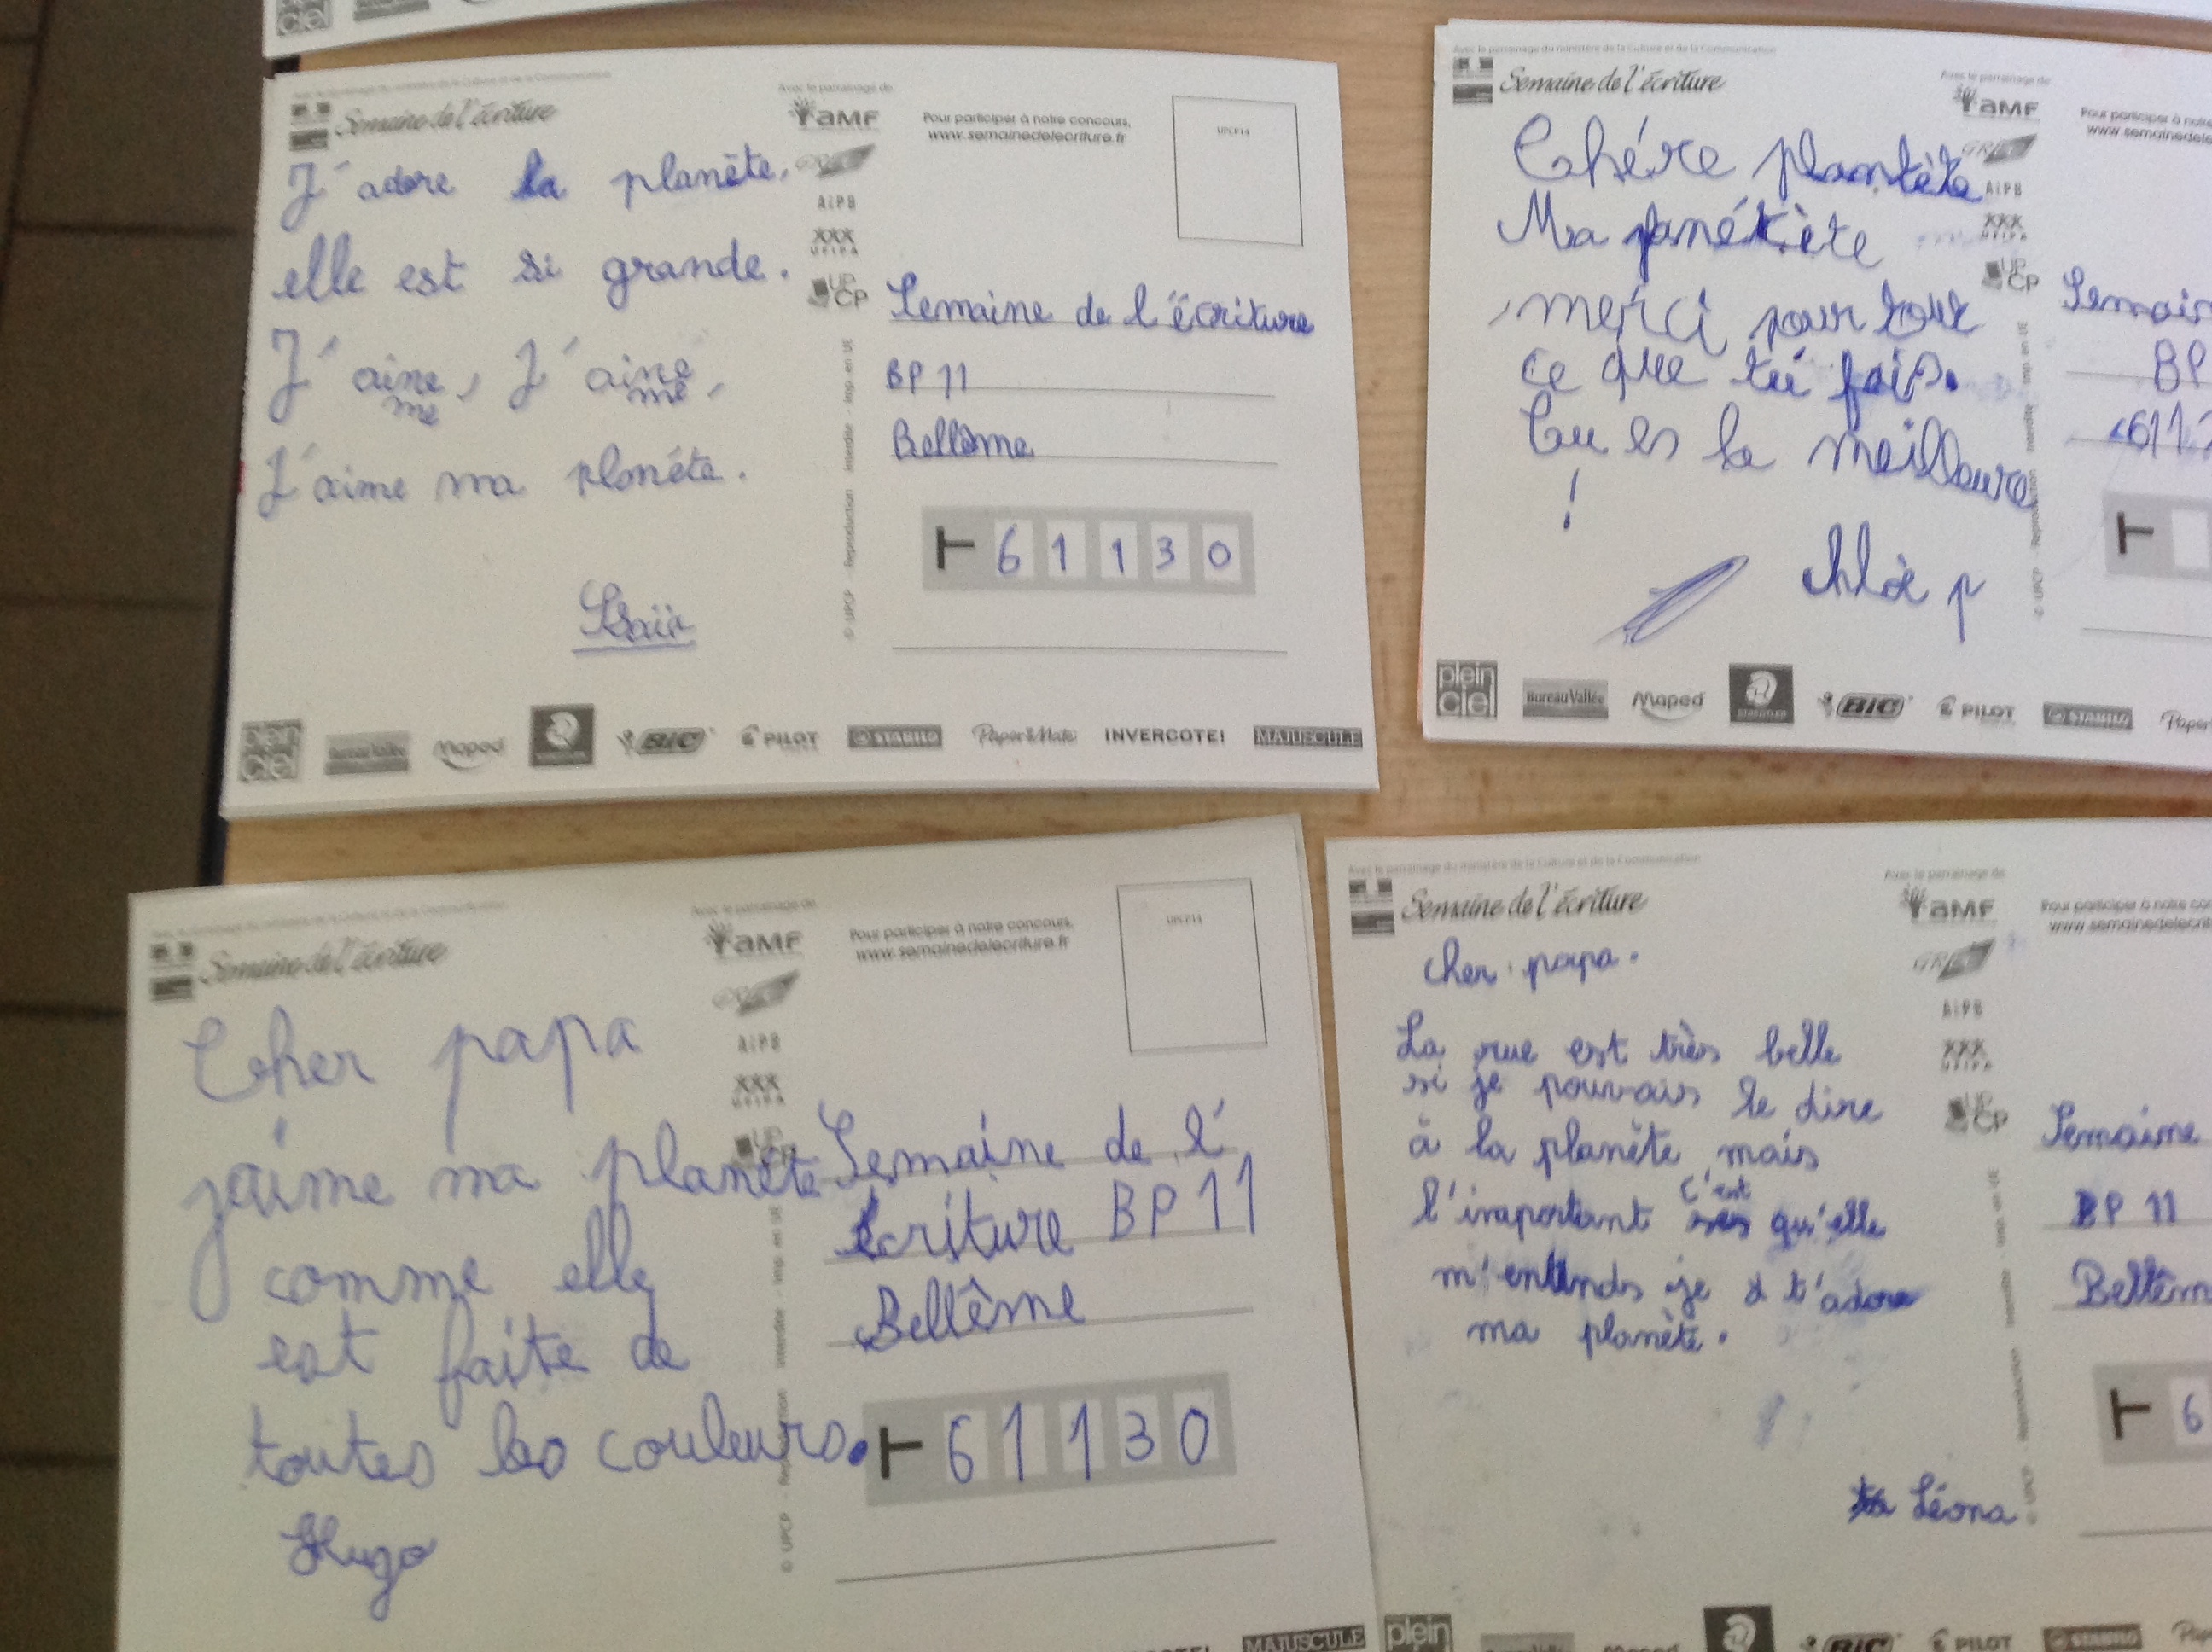 Avec le patronage du ministère de la Culture et de la Communication
Semaine de l'écriture
J'adore la planète,
elle est si grande.
J'aine, J'aine,
me me
J'aime ma planéte.
Avec le parrainage de
aMF
AIPB
UFIPA
UPCP
Pour participer à notre concours,
www.semainedelecriture.fr
UPCP14
Semaine de l'écriture
BP 11
Bellême
61130
© UPCP - Reproduction interdite - Imp. en UE
plein ciel
Bureau Vallée
Maped
BIC
PILOT
STABILO
Paper Mate
INVERCOTE
MAJUSCULE
Avec le patronage du ministère de la Culture et de la Communication
Semaine de l'écriture
Chére plantète
Ma
merci pour tout
ce que tu fais.
Tu es la meilleure
!
chloè p
Avec le parrainage de
aMF
AIPB
UFIPA
UPCP
Pour participer à notre
www.semainedelecriture
Semain
BP
6113
© UPCP - Reproduction interdite - Imp. en UE
plein ciel
Bureau Vallée
Maped
BIC
PILOT
STABILO
Paper
Semaine de l'écriture
Cher papa
j'aime ma planète
comme elle
est faite de
toutes les couleurs.
Hugo
Avec le parrainage de
aMF
AIPB
UFIPA
UPCP
Pour participer à notre concours,
www.semainedelecriture.fr
UPCP14
Semaine de l'
écriture BP 11
Bellême
61130
© UPCP - Reproduction interdite - Imp. en UE
INVERCOTE
MAJUSCULE
Avec le patronage du ministère de la Culture et de la Communication
Semaine de l'écriture
cher papa.
La rue est très belle
si je pouvais le dire
à la planète mais
l'important c'est qu'elle
m'entends je t'adore
ma planète.
Léona
Avec le parrainage de
aMF
AIPB
UFIPA
UPCP
Pour participer à notre con
www.semainedelecrit
Semaine
BP 11
Bellêm
6
© UPCP - Reproduction interdite - Imp. en UE
plein
BIC
PILOT